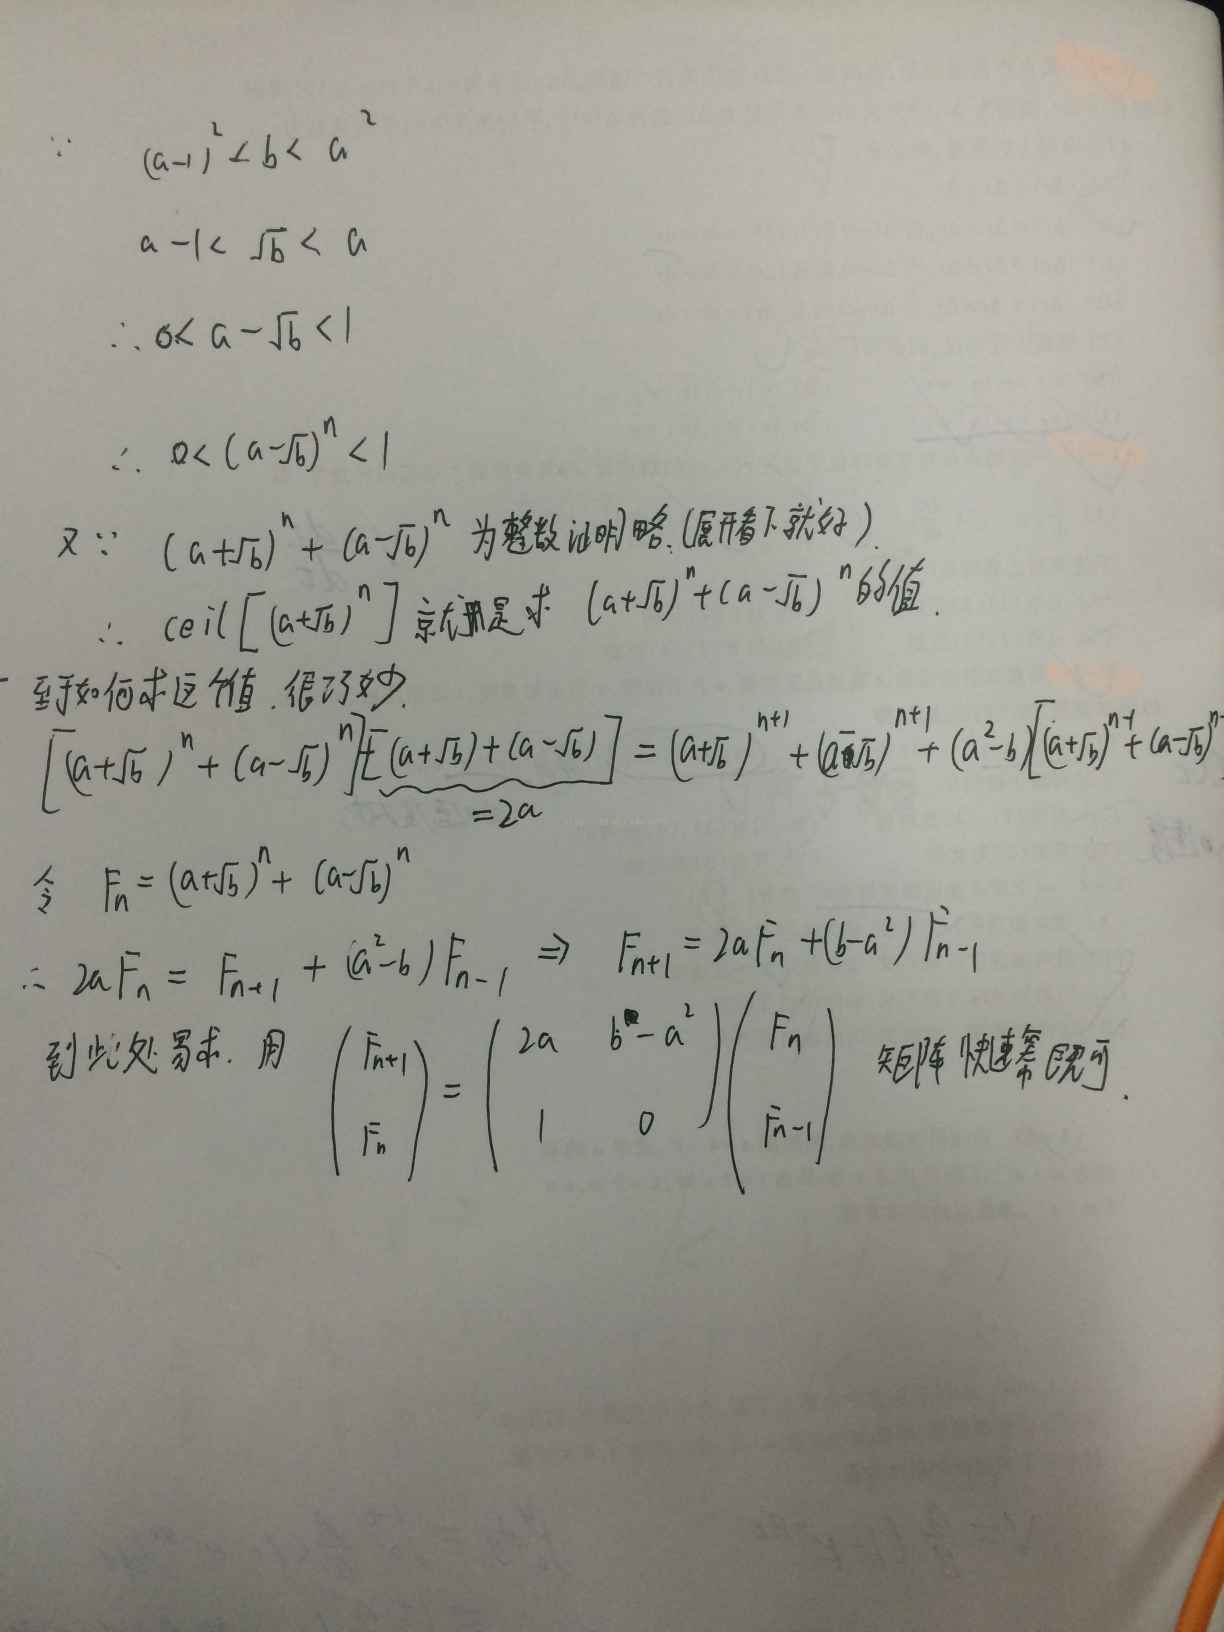 ∵ (a-1)² < b < a²
a-1 < √b < a
∴ 0 < a-√b < 1
∴ 0 < (a-√b)ⁿ < 1
又∵ (a+√b)ⁿ + (a-√b)ⁿ 为整数证明略.(展开看下就好).
∴ ceil[(a+√b)ⁿ] 就是求 (a+√b)ⁿ+(a-√b)ⁿ的值.
至于如何求这个值.很巧妙.
[(a+√b)ⁿ + (a-√b)ⁿ][(a+√b)+(a-√b)] = (a+√b)ⁿ⁺¹ + (a-√b)ⁿ⁺¹ + (a²-b)[(a+√b)ⁿ⁻¹ + (a-√b)ⁿ⁻
=2a
令 Fₙ = (a+√b)ⁿ + (a-√b)ⁿ
∴ 2aFₙ = Fₙ₊₁ + (a²-b)Fₙ₋₁ ⇒ Fₙ₊₁ = 2aFₙ+(b-a²)Fₙ₋₁
到此处易求.用 (Fₙ₊₁ Fₙ) = (2a b-a² 1 0)(Fₙ Fₙ₋₁) 矩阵快速幂既可.